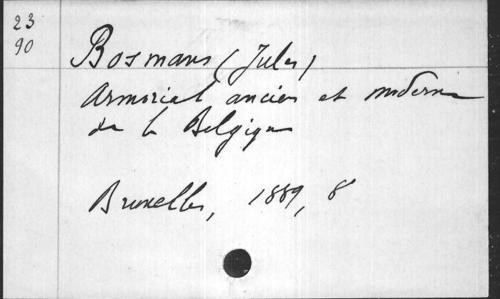 23
90
Bosmans (Jules)
Armorial ancien et moderne
de la Belgique
Bruxelles, 1889, 8